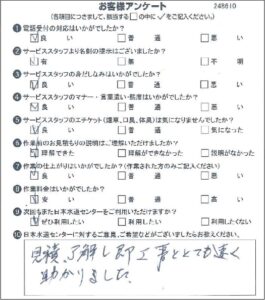 お客様アンケート
248610
(各項目につきまして、該当する□の中に✓をご記入ください。)
❶電話受付の対応はいかがでしたか?
良い 普通 悪い
❷サービススタッフより名刺の提示はございましたか?
有 無 不明
❸サービススタッフの身だしなみはいかがでしたか?
良い 普通 悪い
❹サービススタッフのマナー・言葉遣い・態度はいかがでしたか?
良い 普通 悪い
❺サービススタッフのエチケット(煙草、口臭、体臭)は気になりませんでしたか?
良い 普通 気になった
❻作業前のお見積もりの説明はご理解いただけましたか?
理解できた 理解ができなかった 説明がなかった
❼作業の仕上がりはいかがでしたか?(作業された方のみご記入ください)
良い 普通 悪い
❽作業料金はいかがでしたか?
安い 普通 高い
❾次回もまた日本水道センターをご利用いただけますか?
ぜひ利用したい 利用したい 利用したくない
❿日本水道センターに対するご意見、ご希望などがございましたらお答えください。
見積、了解し即工事ととても速く
助かりました